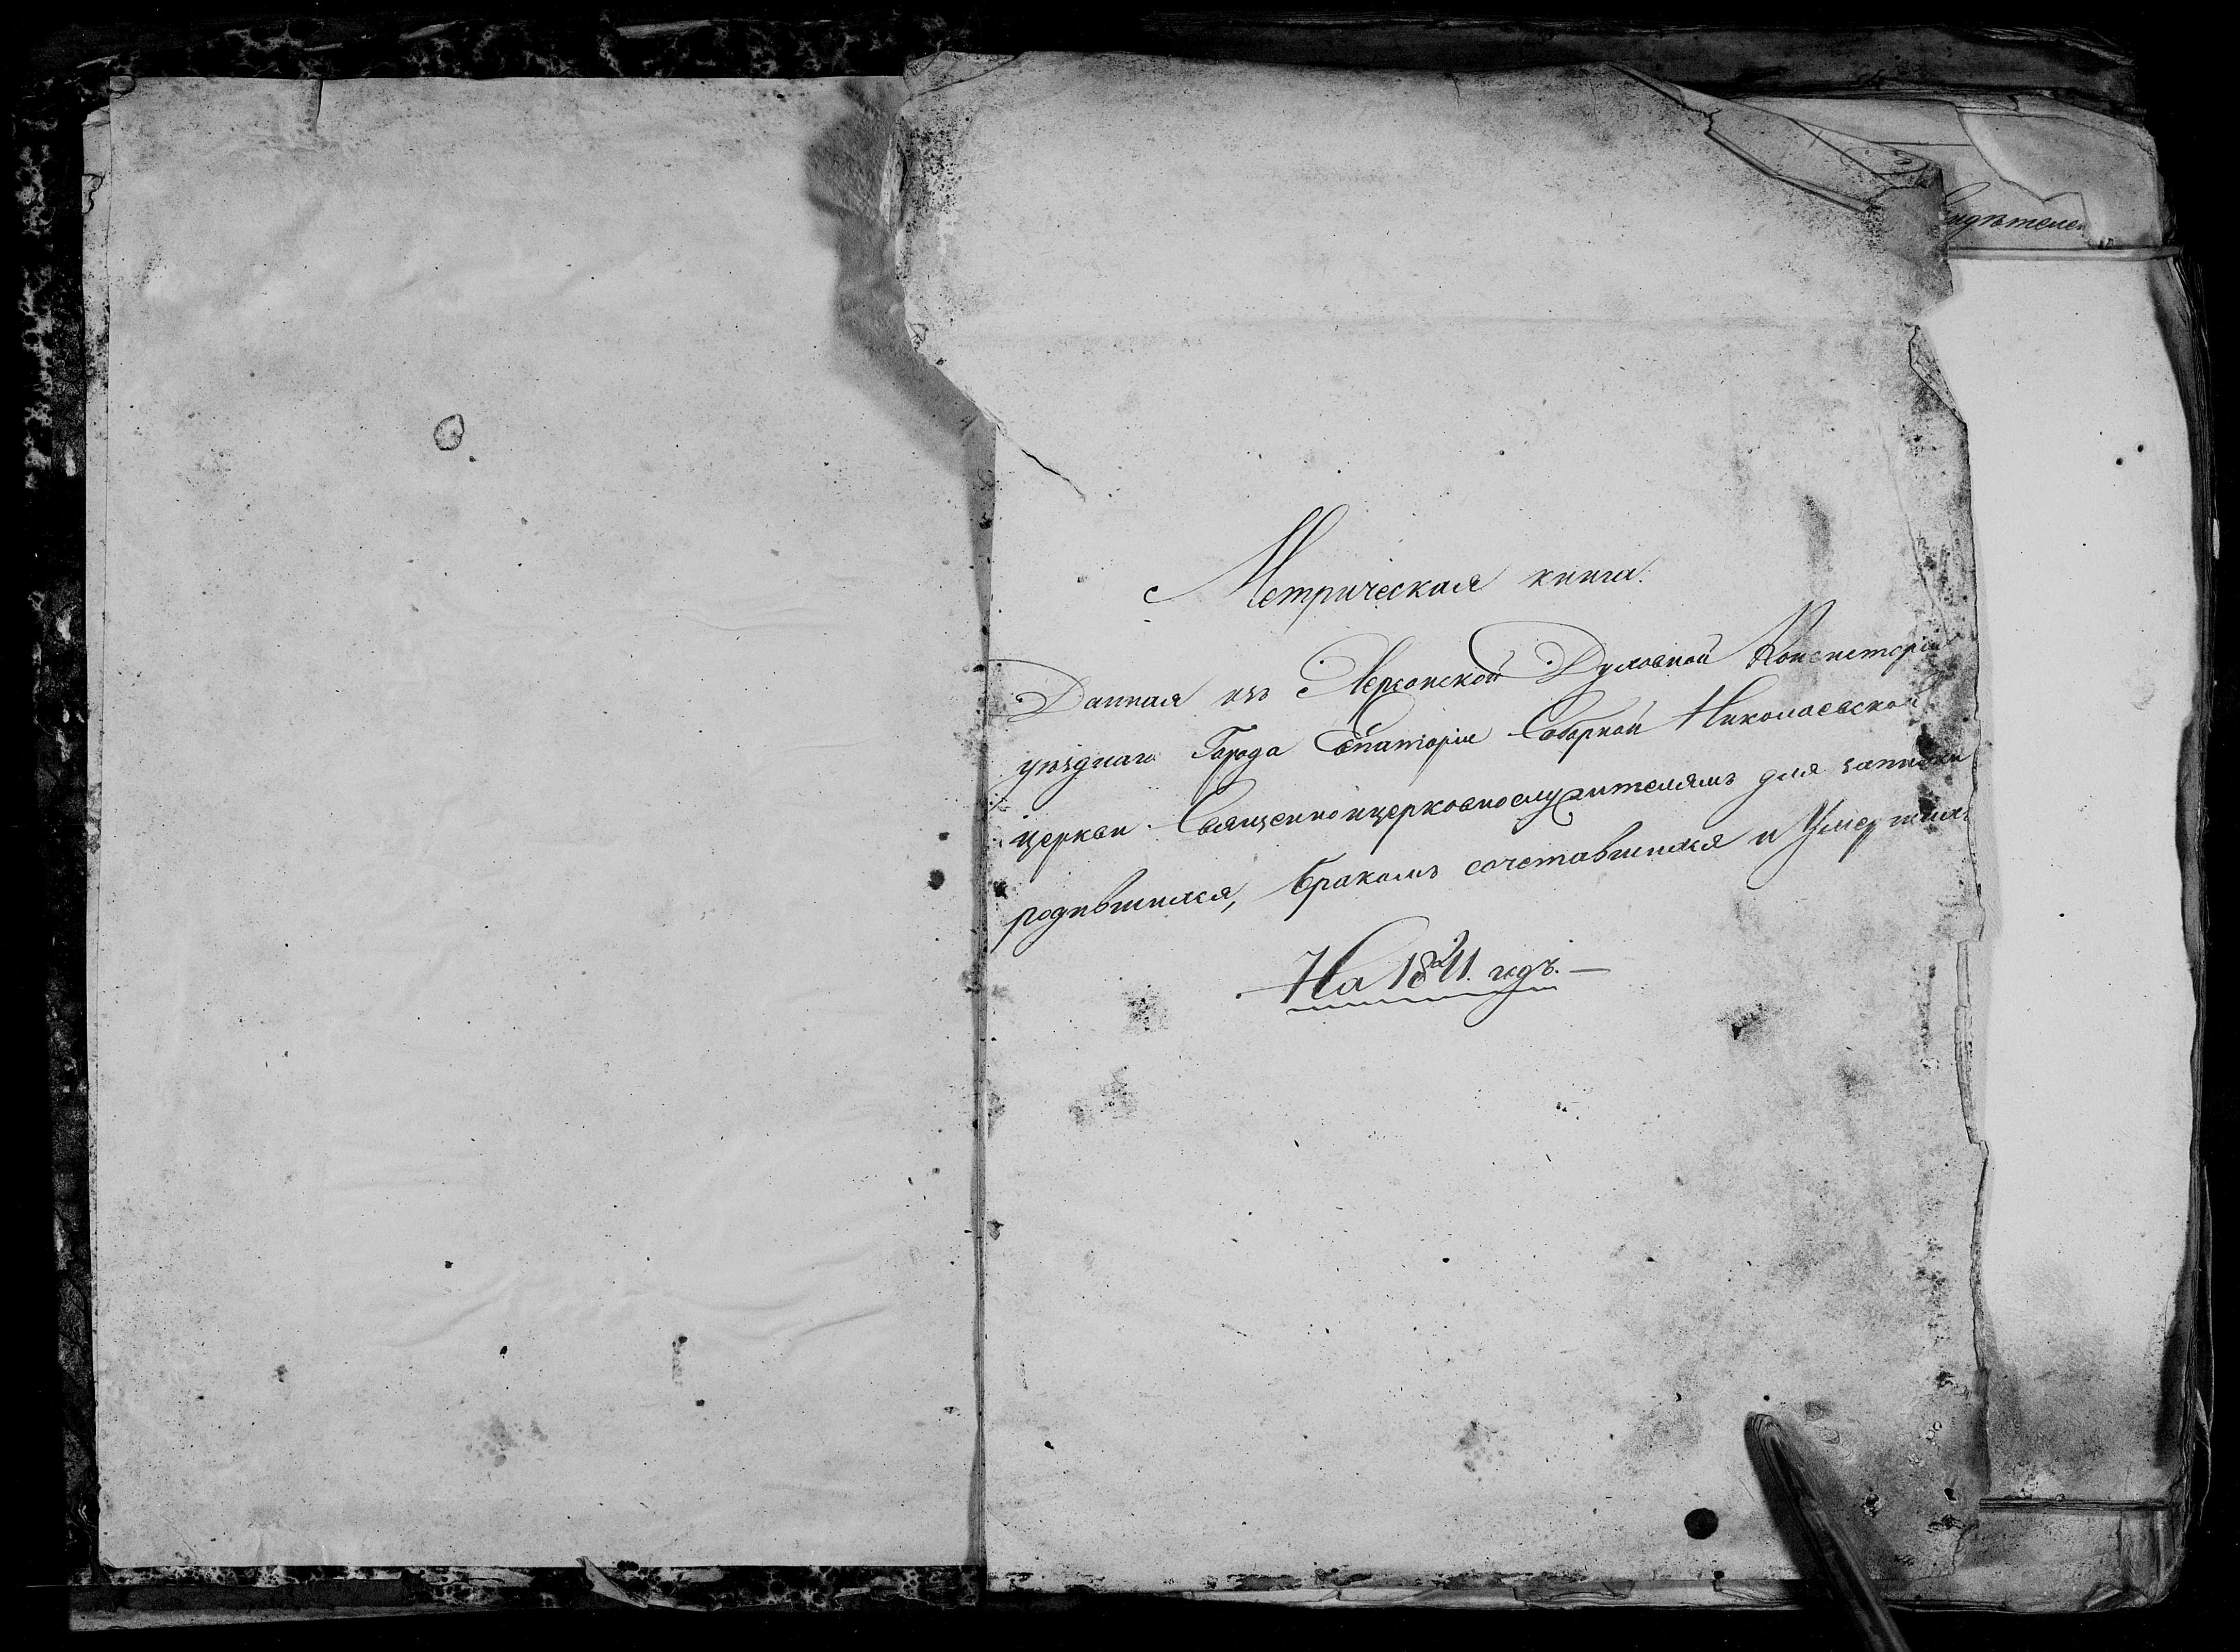 идѣтелей
Метрическая книга.
Данная изъ Херсонской Духовной Консисторіи
уѣзднаго Города Евпаторіи Соборной Николаевской
церкви Священноицерковнослужителямъ для записки
родившихся, бракомъ сочетавшихся и Умершихъ
На 1841. годъ.